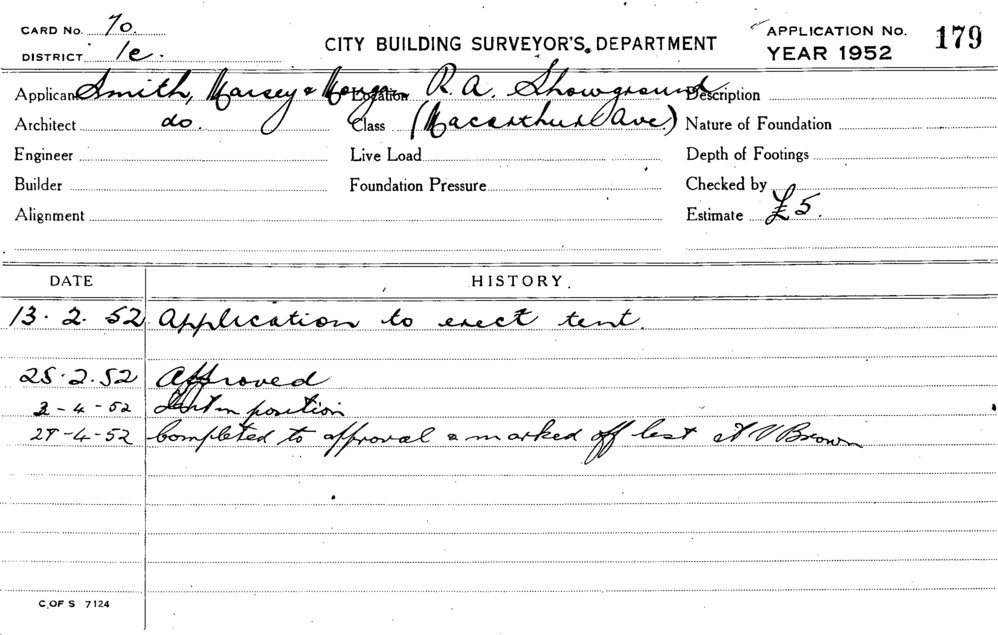 CARD No. 70.
DISTRICT 1c.
CITY BUILDING SURVEYOR'S DEPARTMENT
APPLICATION No. 179
YEAR 1952
Applicant Smith, & Location R. A. Showground Description
Architect do. Class (Macarthur Ave.) Nature of Foundation
Engineer Live Load Depth of Footings
Builder Foundation Pressure Checked by
Alignment Estimate £5.
DATE HISTORY.
13.2.52 Application to erect tent.
25.2.52 Approved
2-4-52 in position
-4-52 Completed to approval & marked off V Brown
C OF S 7124